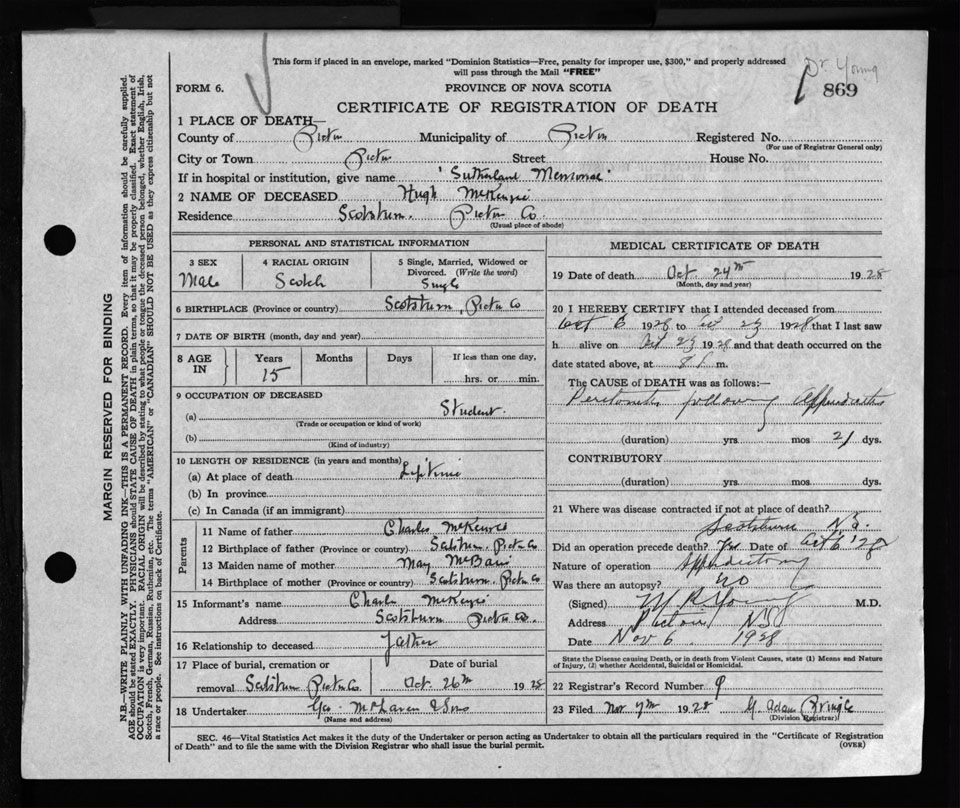 This form if placed in an envelope, marked "Dominion Statistics—Free, penalty for improper use, $300," and properly addressed
will pass through the Mail "FREE"
Dr Young
869
FORM 6.
PROVINCE OF NOVA SCOTIA
CERTIFICATE OF REGISTRATION OF DEATH
1 PLACE OF DEATH—
County of Pictou Municipality of Pictou Registered No.
(For use of Registrar General only)
City or Town Pictou Street House No.
If in hospital or institution, give name 'Sutherland Memorial'
2 NAME OF DECEASED Hugh McKenzie
Residence Scotsburn. Pictou Co.
(Usual place of abode)
PERSONAL AND STATISTICAL INFORMATION
3 SEX
Male
4 RACIAL ORIGIN
Scotch
5 Single, Married, Widowed or
Divorced. (Write the word)
Single
6 BIRTHPLACE (Province or country) Scotsburn, Pictou Co
7 DATE OF BIRTH (month, day and year)
8 AGE IN
Years Months Days If less than one day,
15 hrs. or min.
9 OCCUPATION OF DECEASED
(a) Student.
(Trade or occupation or kind of work)
(b)
(Kind of industry)
10 LENGTH OF RESIDENCE (in years and months)
(a) At place of death Life time
(b) In province
(c) In Canada (if an immigrant)
Parents
11 Name of father Charles McKenzie
12 Birthplace of father (Province or country) Scotsburn. Pictou Co
13 Maiden name of mother May
14 Birthplace of mother (Province or country) Scotsburn. Pictou Co
15 Informant's name Charles McKenzie
Address Scotsburn Pictou Co.
16 Relationship to deceased Father
17 Place of burial, cremation or
removal Scotsburn Pictou Co.
Date of burial
Oct. 26th 1928
18 Undertaker Geo. McLaren & Sons
(Name and address)
MEDICAL CERTIFICATE OF DEATH
19 Date of death Oct. 24th 1928
(Month, day and year)
20 I HEREBY CERTIFY that I attended deceased from
Oct 6 1928 to Oct 23 1928 that I last saw
h alive on Oct 23 1928 and that death occurred on the
date stated above, at 8 P. m.
The CAUSE of DEATH was as follows:—
Peritonitis following Appendicitis
(duration) yrs. mos 21 dys.
CONTRIBUTORY
(duration) yrs. mos. dys.
21 Where was disease contracted if not at place of death?
Scotsburn N.S.
Did an operation precede death? Yes Date of Oct 6 '28
Nature of operation
Was there an autopsy? no
(Signed) Young M.D.
Address Pictou NS
Date Nov 6 1928
State the Disease causing Death, or in death from Violent Causes, state (1) Means and Nature
of Injury, (2) whether Accidental, Suicidal or Homicidal.
22 Registrar's Record Number 9
23 Filed Nov 7th 1928 G. Adam Pringle
(Division Registrar)
SEC. 46—Vital Statistics Act makes it the duty of the Undertaker or person acting as Undertaker to obtain all the particulars required in the "Certificate of Registration
of Death" and to file the same with the Division Registrar who shall issue the burial permit.
(OVER)
MARGIN RESERVED FOR BINDING
N.B.—WRITE PLAINLY WITH UNFADING INK—THIS IS A PERMANENT RECORD. Every item of information should be carefully supplied.
AGE should be stated EXACTLY. PHYSICIANS should STATE CAUSE OF DEATH in plain terms, so that it may be properly classified. Exact statement of
OCCUPATION is very important. RACIAL ORIGIN will be described by stating to what people or tongue the deceased person belonged, whether English, Irish,
Scotch, French, German, Russian, Ruthenian, etc. The terms "AMERICAN" or "CANADIAN" SHOULD NOT BE USED as they express citizenship but not
a race or people. See instructions on back of Certificate.